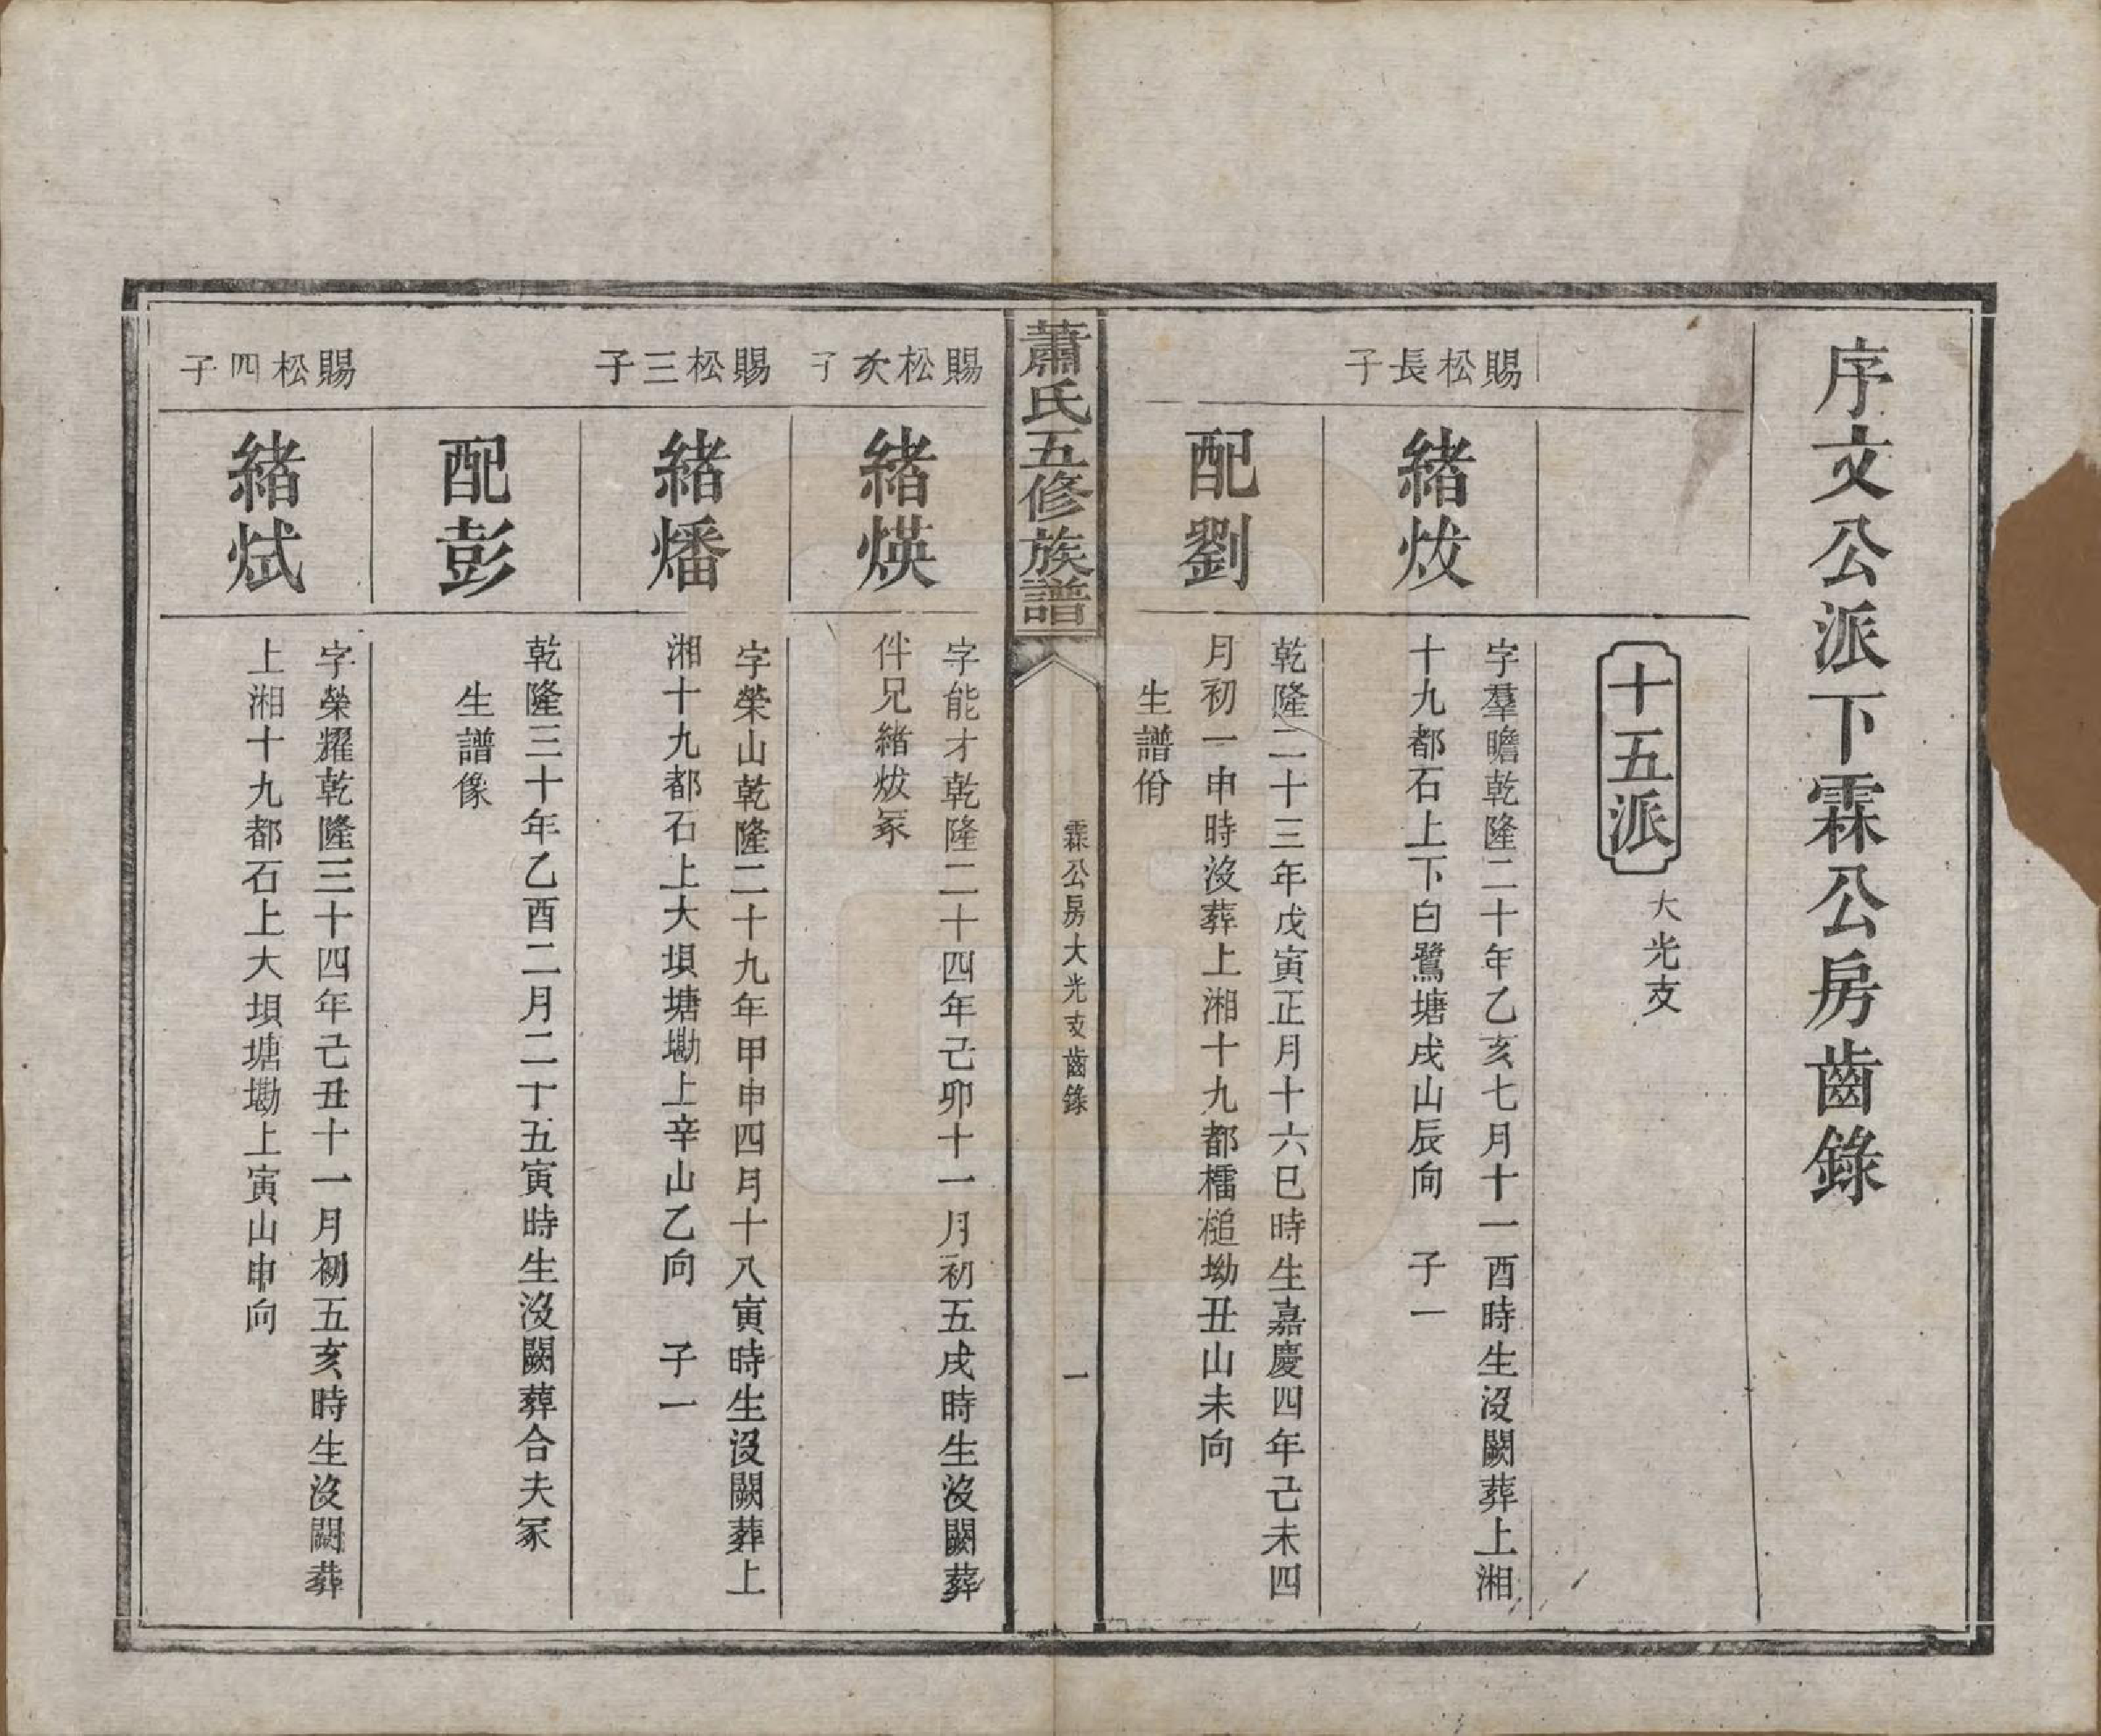 序文公派下霖公房齒錄
十五派
大光支
賜松長子
緒炦
字羣瞻乾隆二十年乙亥七月十一酉時生沒闕葬上湘
十九都石上下白鷺塘戌山辰向　子一
配劉
乾隆二十三年戊寅正月十六巳時生嘉慶四年己未四
月初一申時沒葬上湘十九都檑槌坳丑山未向
生譜佾
蕭氏五修族譜
霖公房大光支齒錄
一
賜松次子
緒煐
字能才乾隆二十四年己卯十一月初五戌時生沒闕葬
伴兄緒炦冢
賜松三子
緒燔
字榮山乾隆二十九年甲申四月十八寅時生沒闕葬上
湘十九都石上大垻塘墈上辛山乙向　子一
配彭
乾隆三十年乙酉二月二十五寅時生沒闕葬合夫冢
生譜像
賜松四子
緒烒
字榮耀乾隆三十四年己丑十一月初五亥時生沒闕葬
上湘十九都石上大垻塘墈上寅山申向